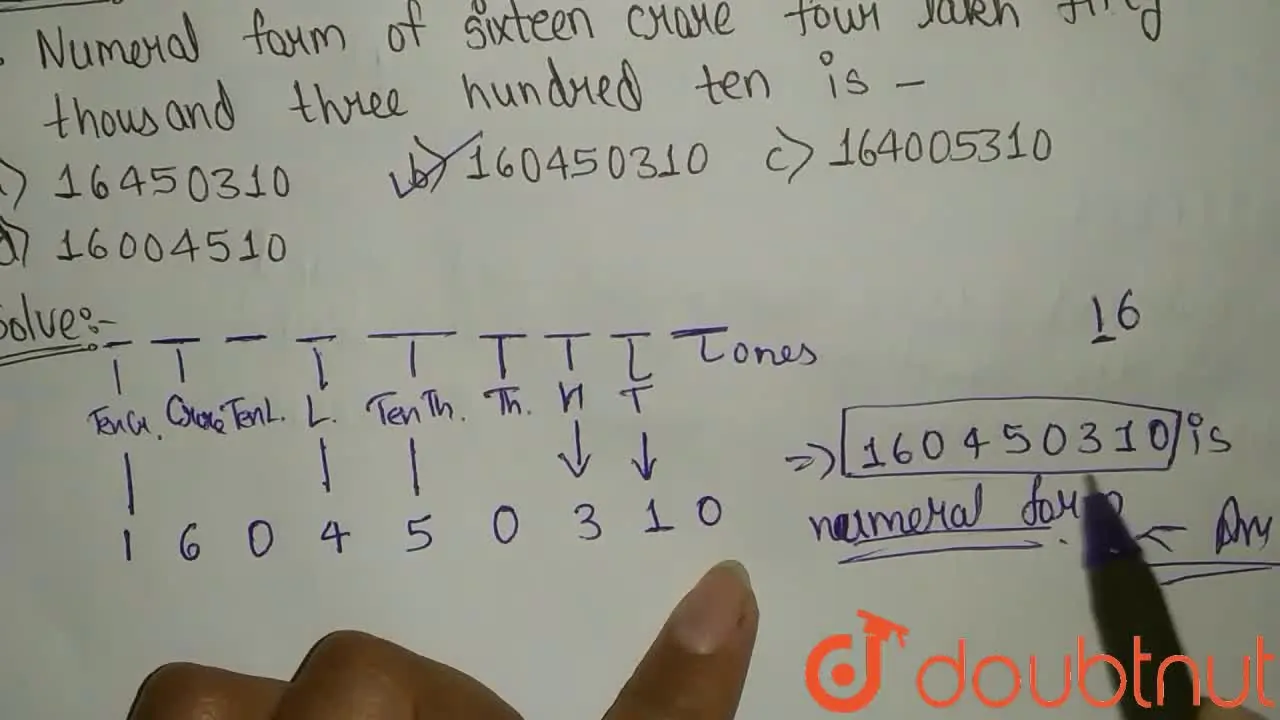 Numeral form of sixteen crore four lakh fifty
thousand three hundred ten is -
) 16450310 b) 160450310 c) 164005310
d) 16004510
Solve:-
16
Ones
Ten Cr. Crore Ten L. L. Ten Th. Th. H T
=> 160450310 is
numeral form. <- Ans
1 6 0 4 5 0 3 1 0
doubtnut